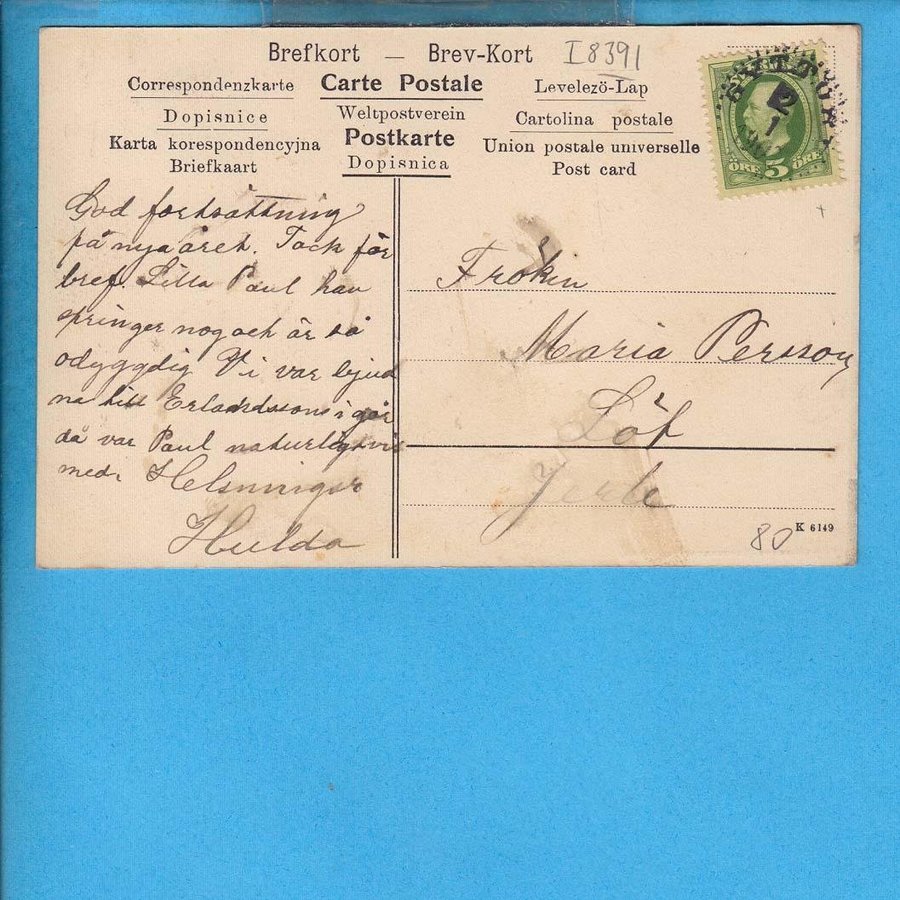 Brefkort — Brev-Kort I8391
Correspondenzkarte Carte Postale Levelezö-Lap
Dopisnice Weltpostverein Cartolina postale
Karta korespondencyjna Postkarte Union postale universelle
Briefkaart Dopisnica Post card
ÖRE 5 ÖRE
2
1
God fortsättning
på nya året. Tack för
bref. Lilla Paul han
springer nog och är så
odygdig Vi var bjud
na till Erlandssons i går
då var Paul naturligtvis
med. Helsningar
Hulda
Fröken
Maria Persson
Löf
80
K 6149